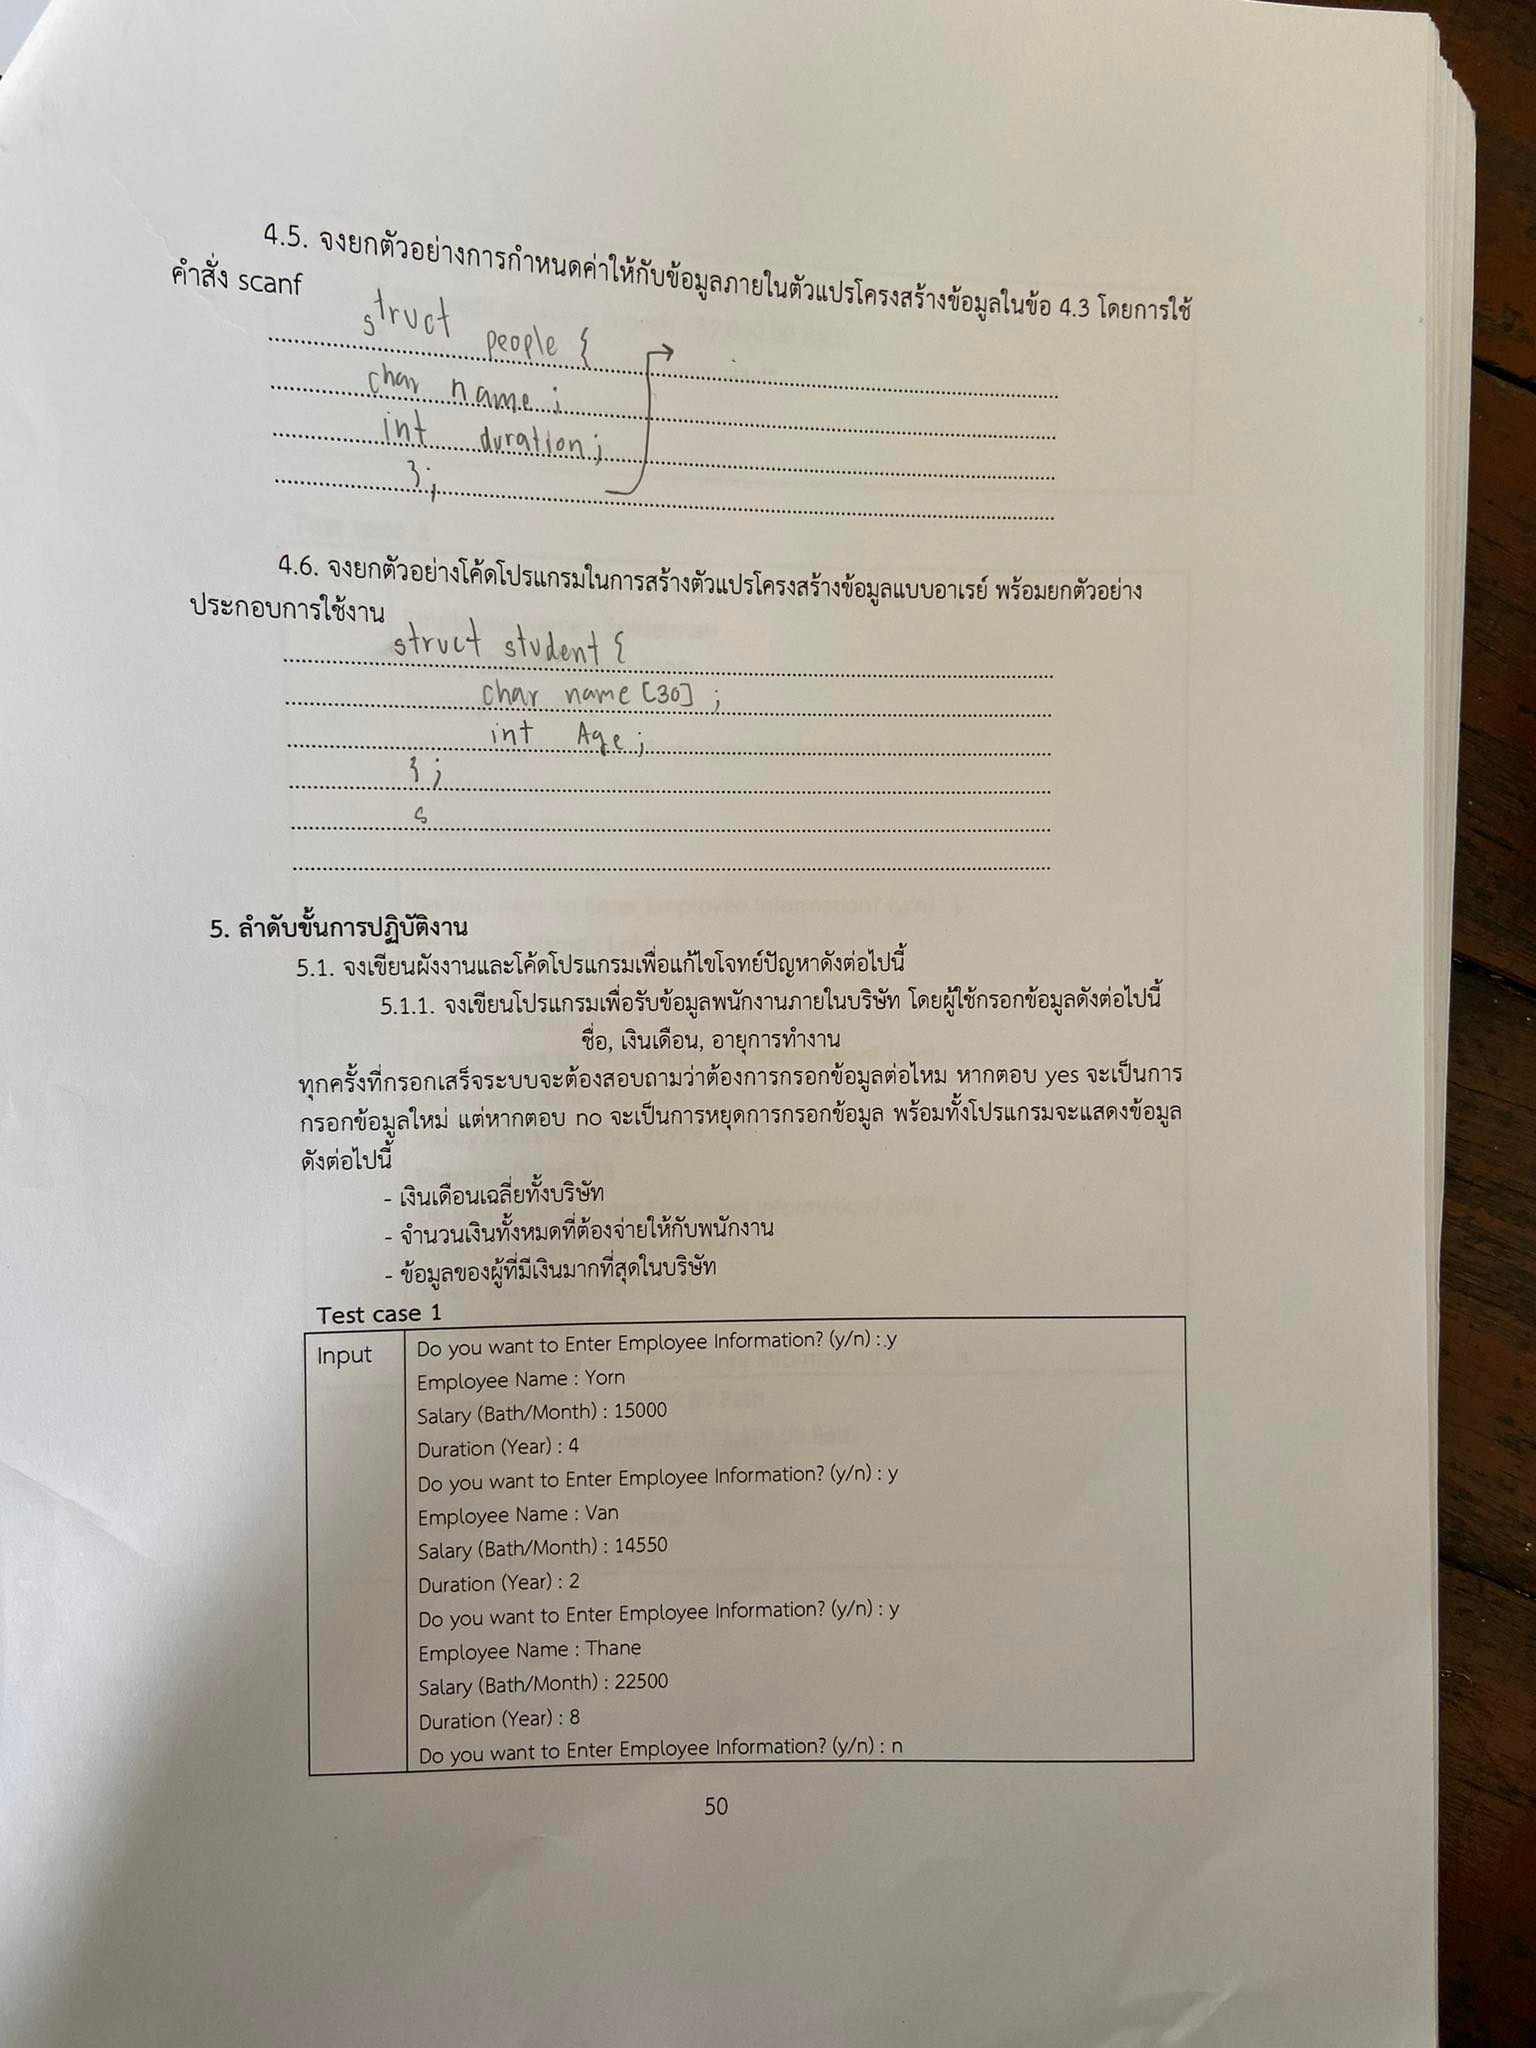 4.5. จงยกตัวอย่างการกำหนดค่าให้กับข้อมูลภายในตัวแปรโครงสร้างข้อมูลในข้อ 4.3 โดยการใช้
คำสั่ง scanf
struct people {
char name ;
int duration ;
} ;
4.6. จงยกตัวอย่างโค้ดโปรแกรมในการสร้างตัวแปรโครงสร้างข้อมูลแบบอาเรย์ พร้อมยกตัวอย่าง
ประกอบการใช้งาน
struct student {
char name [30] ;
int Age ;
} ;
s
5. ลำดับขั้นการปฏิบัติงาน
5.1. จงเขียนผังงานและโค้ดโปรแกรมเพื่อแก้ไขโจทย์ปัญหาดังต่อไปนี้
5.1.1. จงเขียนโปรแกรมเพื่อรับข้อมูลพนักงานภายในบริษัท โดยผู้ใช้กรอกข้อมูลดังต่อไปนี้
ชื่อ, เงินเดือน, อายุการทำงาน
ทุกครั้งที่กรอกเสร็จระบบจะต้องสอบถามว่าต้องการกรอกข้อมูลต่อไหม หากตอบ yes จะเป็นการ
กรอกข้อมูลใหม่ แต่หากตอบ no จะเป็นการหยุดการกรอกข้อมูล พร้อมทั้งโปรแกรมจะแสดงข้อมูล
ดังต่อไปนี้
- เงินเดือนเฉลี่ยทั้งบริษัท
- จำนวนเงินทั้งหมดที่ต้องจ่ายให้กับพนักงาน
- ข้อมูลของผู้ที่มีเงินมากที่สุดในบริษัท
Test case 1
Input
Do you want to Enter Employee Information? (y/n) : y
Employee Name : Yorn
Salary (Bath/Month) : 15000
Duration (Year) : 4
Do you want to Enter Employee Information? (y/n) : y
Employee Name : Van
Salary (Bath/Month) : 14550
Duration (Year) : 2
Do you want to Enter Employee Information? (y/n) : y
Employee Name : Thane
Salary (Bath/Month) : 22500
Duration (Year) : 8
Do you want to Enter Employee Information? (y/n) : n
50